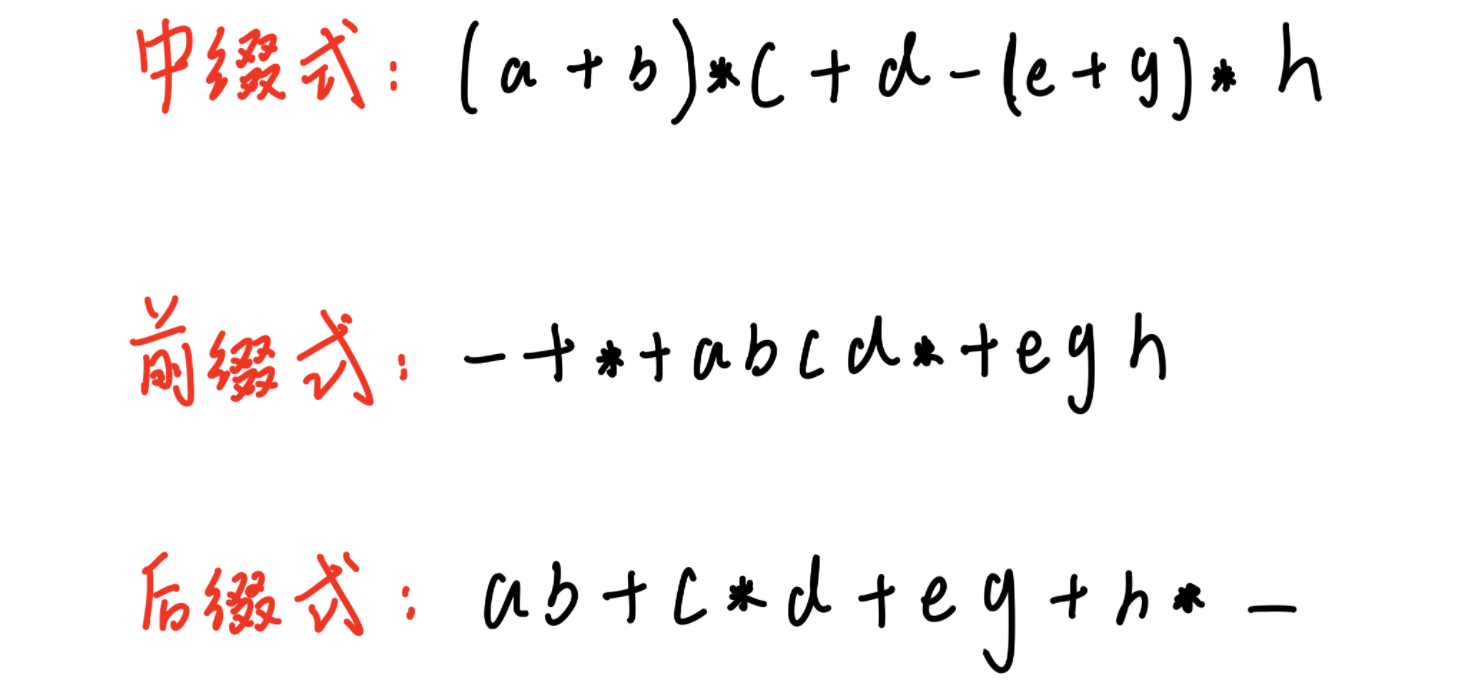 中缀式: (a+b)*c+d-(e+g)*h
前缀式: -+*+abcd*+egh
后缀式: ab+c*d+eg+h*-